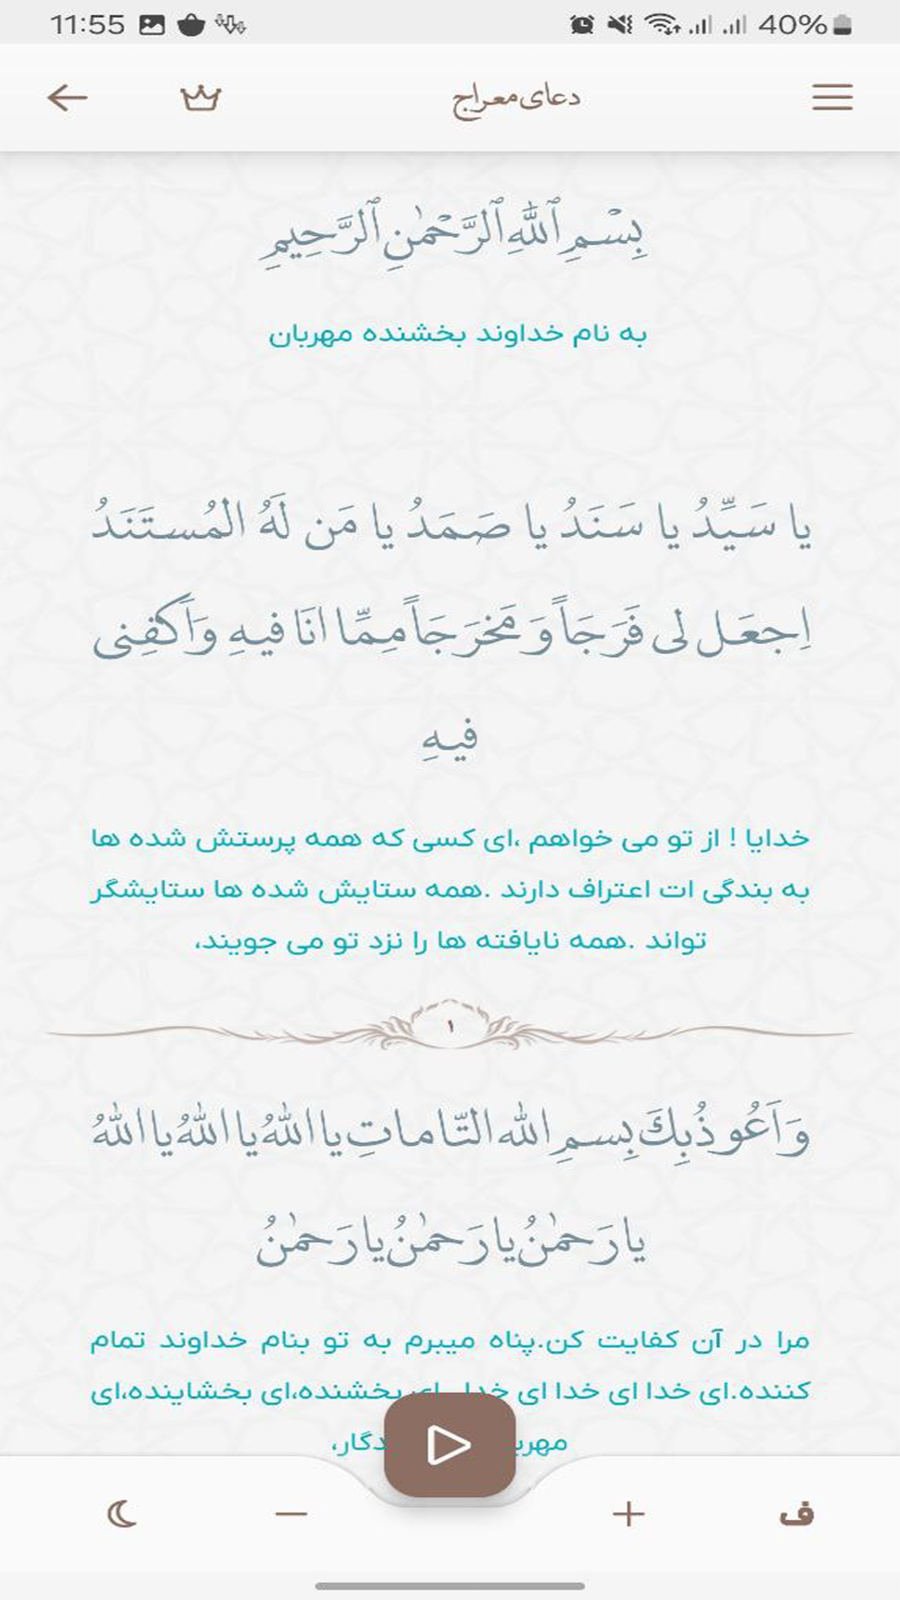 11:55
40%
دعای معراج
بِسْمِ ٱللَّهِ ٱلرَّحْمٰنِ ٱلرَّحِيمِ
به نام خداوند بخشنده مهربان
یا سَیِّدُ یا سَنَدُ یا صَمَدُ یا مَن لَهُ المُستَنَدُ
اِجعَل لی فَرَجَاً وَ مَخرَجَاً مِمِّا انَا فیهِ وَاَکفِنی
فیهِ
خدایا ! از تو می خواهم ،ای کسی که همه پرستش شده ها
به بندگی ات اعتراف دارند .همه ستایش شده ها ستایشگر
تواند .همه نایافته ها را نزد تو می جویند،
۱
وَ اَعُوذُ بِكَ بِسمِ الله التّاماتِ یا اللهُ یا اللهُ یا اللهُ
یا رَحمٰنُ یا رَحمٰنُ یا رَحمٰنُ
مرا در آن کفایت کن.پناه میبرم به تو بنام خداوند تمام
کننده.ای خدا ای خدا ای خدا بخشنده،ای بخشاینده،ای
ف